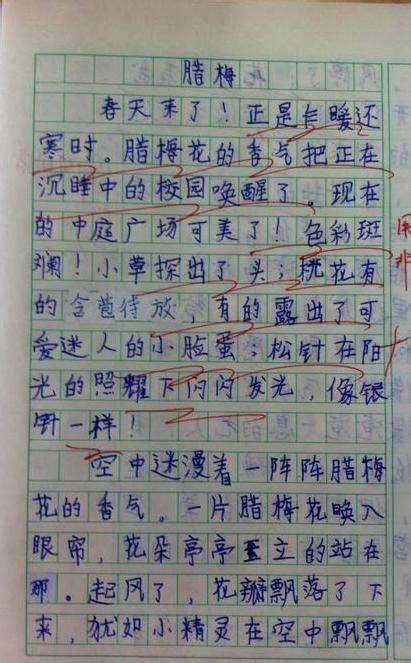 腊梅
春天来了！正是乍暖还
寒时。腊梅花的香气把正在
沉睡中的校园唤醒了。现在
的中庭广场可美了！色彩斑
斓！小草探出了头；桃花有
的含苞待放，有的露出了可
爱迷人的小脸蛋；松针在阳
光的照耀下闪闪发光，像银
针一样！
空中迷漫着一阵阵腊梅
花的香气。一片腊梅花映入
眼帘，花朵亭亭玉立的站在
那。起风了，花瓣飘落了下
来，犹如小精灵在空中飘飘